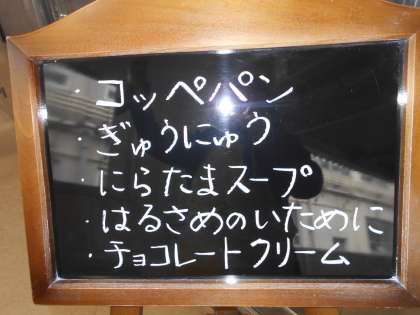 ・コッペパン
・ぎゅうにゅう
・にらたまスープ
・はるさめのいために
・チョコレートクリーム